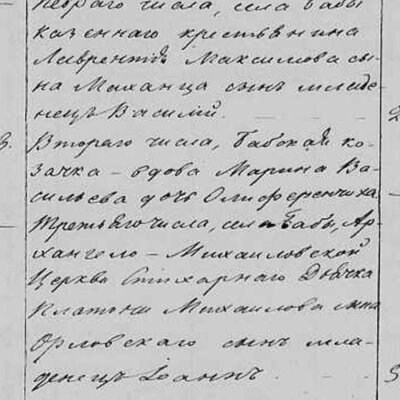 перваго числа, села Бабы
казеннаго крестьянина
Лаврентія Максимова сы-
на Маханца сынъ младе-
нецъ Василій.
3. Втораго числа, Бабская ко-
зачка - вдова Марина Ва-
сильева дочь Олиференчиха
Третьяго числа, села Бабы, Ар-
хангело - Михаиловской
Церкви Стихарнаго Дьячка
Платона Михаилова сына
Орловскаго сынъ мла-
денецъ Іоаннъ.